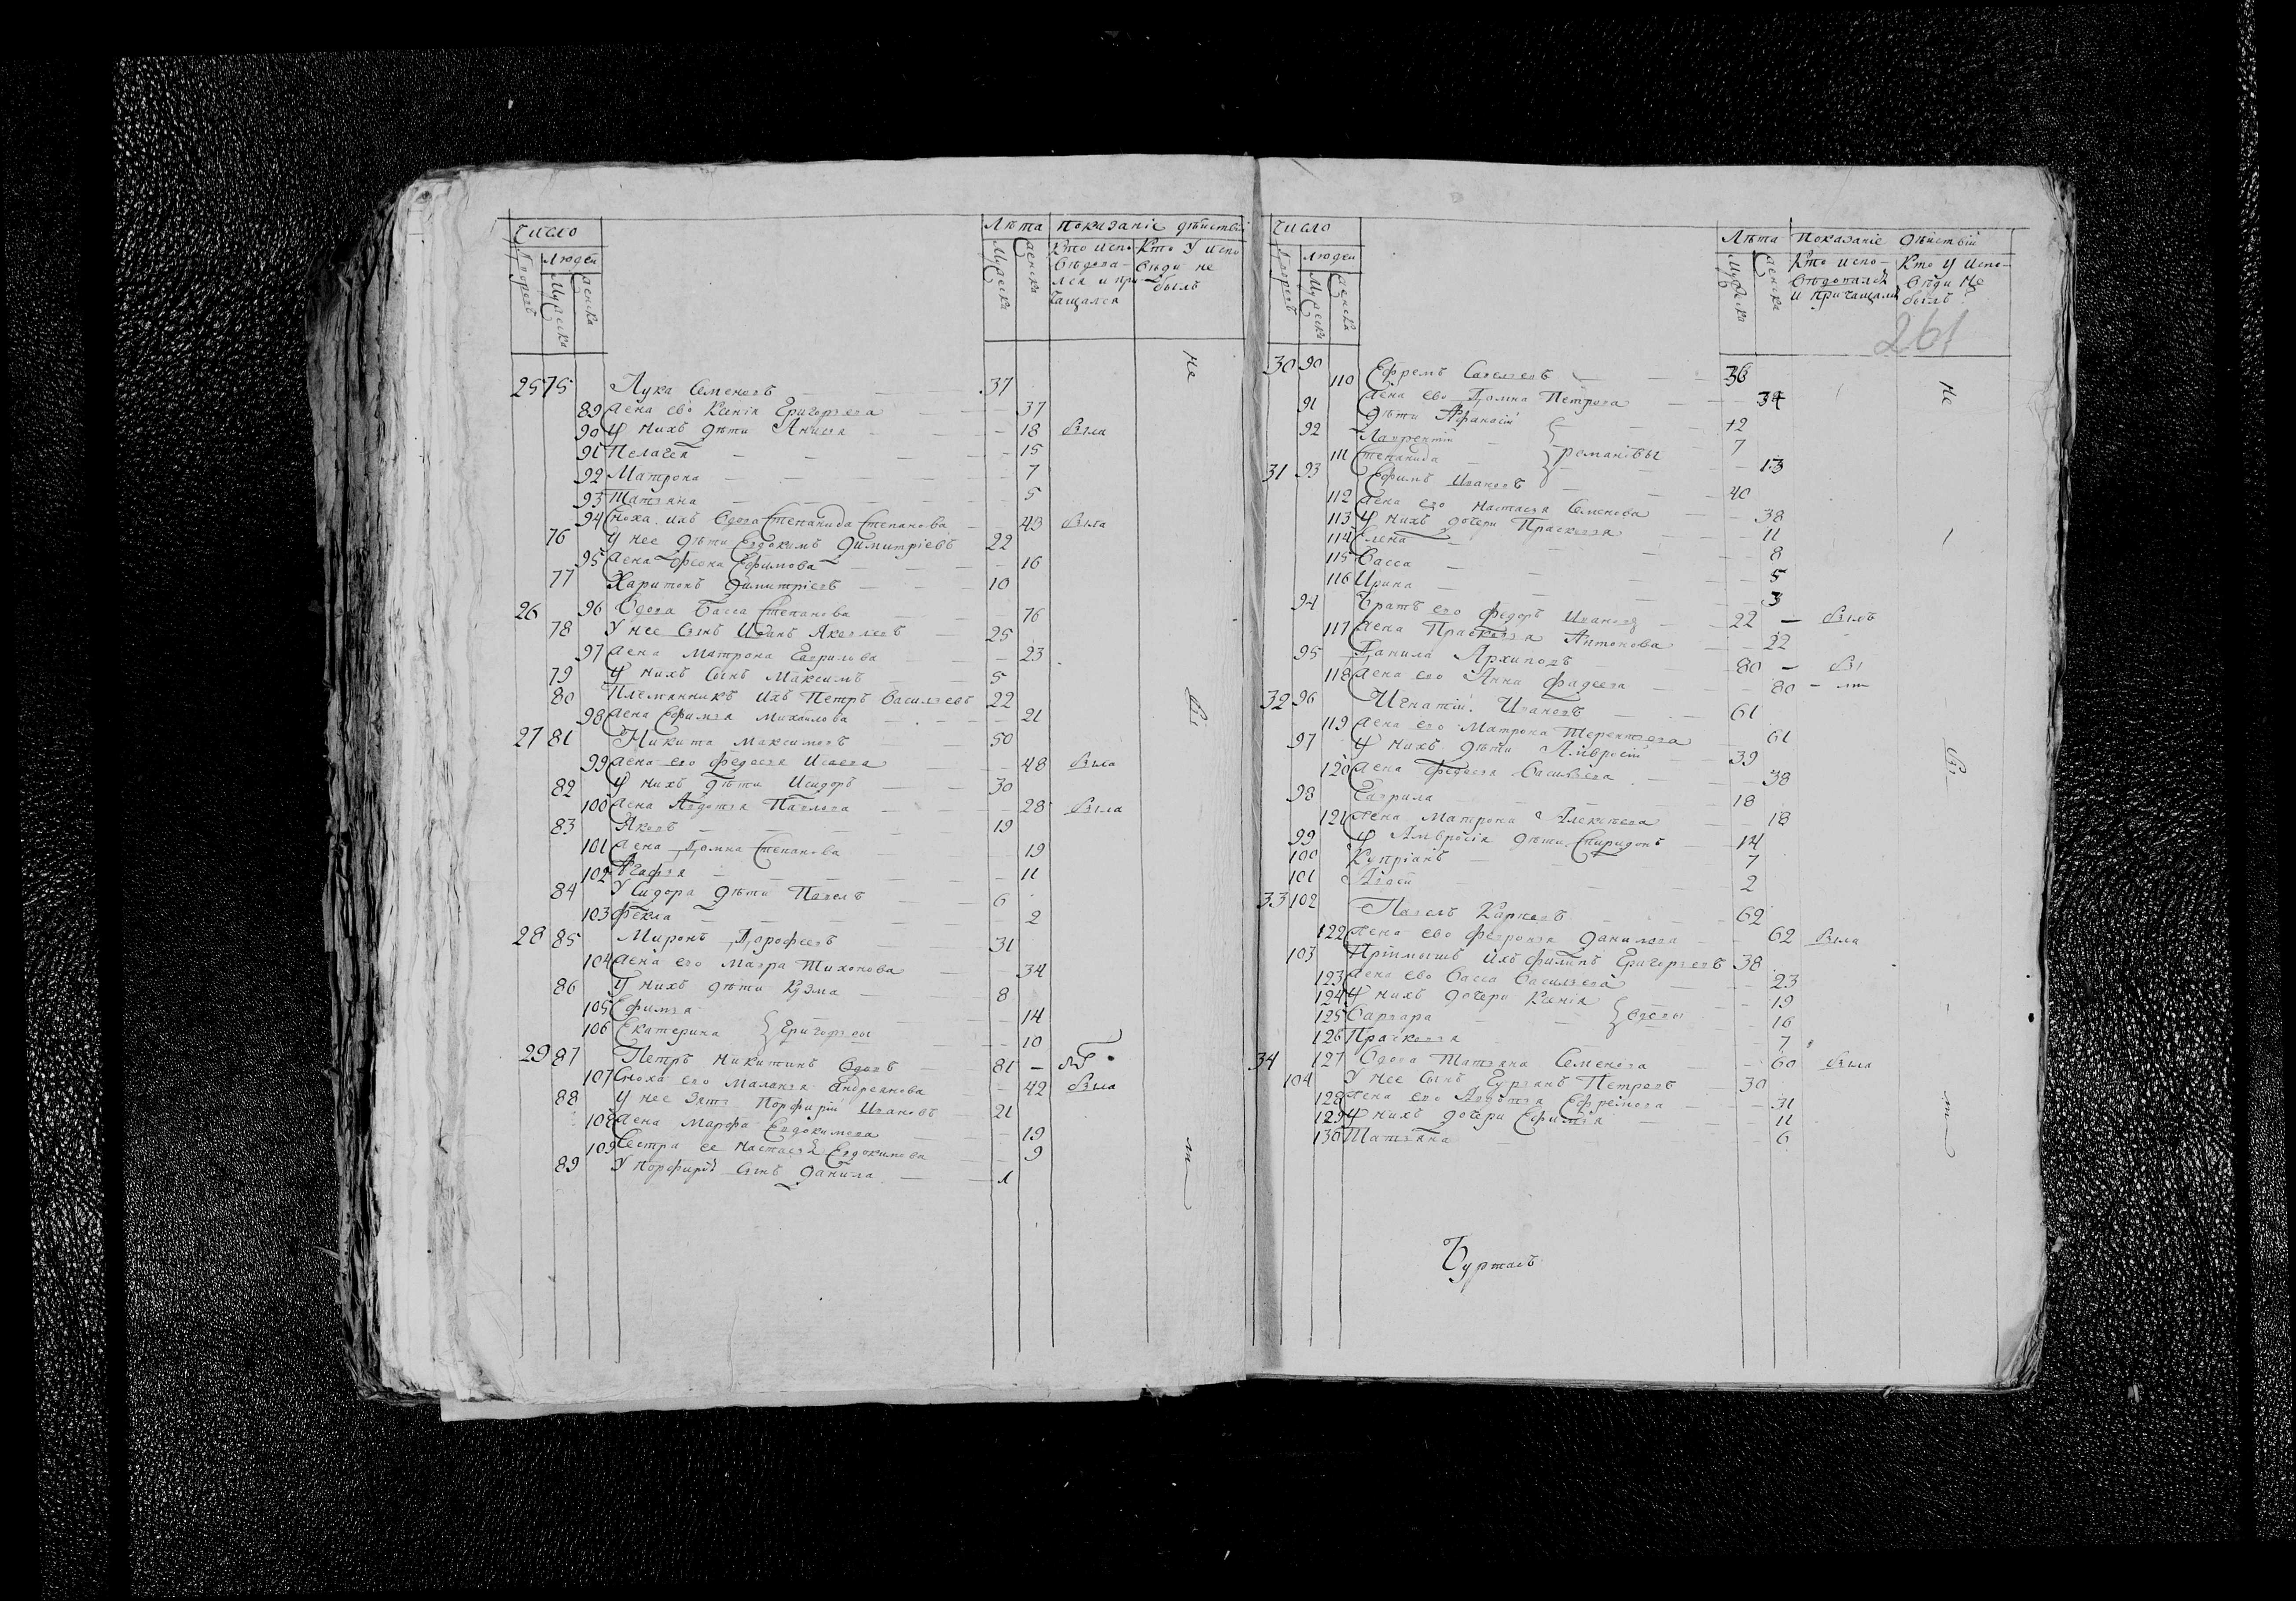 Число
Людей
Дворовъ
Мужеска
Женска
Лѣта
Мужеска
Женска
Показаніе дѣйствъ
Кто испо-
вѣдова-
лся и при-
чащался
Кто у испо
вѣди не
былъ
Не
25 75 Лука Семеновъ 37
89 Жена ево Ксенія Григорьева 37
90 У нихъ дѣти Анисья 18 была
91 Пелагея 15
92 Матрона 7
93 Татьяна 5
94 Сноха ихъ вдова Степанида Степанова 43 была
76 У нее дѣти Евдокимъ Димитріевъ 22
95 Жена Ефимова 16
77 Харитонъ Димитріевъ 10
26 96 Вдова Васса Степанова 76
78 У нее сынъ Иванъ Яковлевъ 25
97 Жена Матрона Гаврилова 23
79 У нихъ сынъ Максимъ 5
80 Племянникъ ихъ Петръ Васильевъ 22
98 Жена Ефимья Михаилова 21
Бы
27 81 Никита Максимовъ 50
99 Жена его Федосья Исаева 48 была
82 У нихъ дѣти Исидоръ 30
100 Жена Авдотья Павлова 28 была
83 Яковъ 19
101 Жена Домна Степанова 19
102 Агафья 11
84 У Сидора дѣти Павелъ 6
103 Фекла 2
28 85 Миронъ Дорофеевъ 31
104 Жена его Мавра Тихонова 34
86 У нихъ дѣти Кузма 8
105 Ефимья 14
106 Екатерина } Григорьевы 10
29 87 Петръ Никитинъ вдовъ 81
107 Сноха его Маланья Андреянова 42 была
88 У нее зять Порфирій Ивановъ 21
108 Жена Марфа Евдокимова 19
109 Сестра ее Настасья Евдокимова 9
89 У Порфирія сынъ Данила 1
Число
Людей
Дворовъ
Мужеска
Женска
Лѣта
Мужеска
Женска
Показаніе дѣйствій
Кто испо-
вѣдовался
и причащался
Кто у испо-
вѣди не
былъ
261
Не
30 90 Ефремъ Савельевъ 36
110 Жена ево Домна Петрова 34
91 Дѣти Афанасій 12
92 Лаврентій 7
111 Степанида } Романовы 13
31 93 Ефимъ Ивановъ 40
112 Жена его Настасья Семенова 38
113 У нихъ дочери Прасковья 11
114 Елена 8
115 Васса 5
116 Ирина 3
94 Братъ его Федоръ Ивановъ 22 былъ
117 Жена Прасковья Антонова 22
95 Данила Архиповъ 80 бы
118 Жена его Анна Фадеева 80 ли
32 96 Игнатій Ивановъ 61
119 Жена его Матрона Терентьева 61
97 У нихъ дѣти Амвросій 39
120 Жена Федосья Васильева 38
Бы
98 Гаврила 18
121 Жена Матрона Алексѣева 18
99 У Амвросія дѣти Спиридонъ 14
100 Купріанъ 7
101 Авдей 2
33 102 Павелъ Карповъ 62
122 Жена ево Февронья Данилова 62 была
103 Пріимышъ ихъ Филипъ Григорьевъ 38
123 Жена ево Васса Васильева 23
124 У нихъ дочери Ксенія 19
125 Варвара 16
126 Прасковья 7
34 127 Вдова Татьяна Семенова 60 была
104 У нее сынъ Гурьянъ Петровъ 30
128 Жена его Авдотья Ефремова 31
129 У нихъ дочери Ефимья 11
130 Татьяна 6
Буртасъ